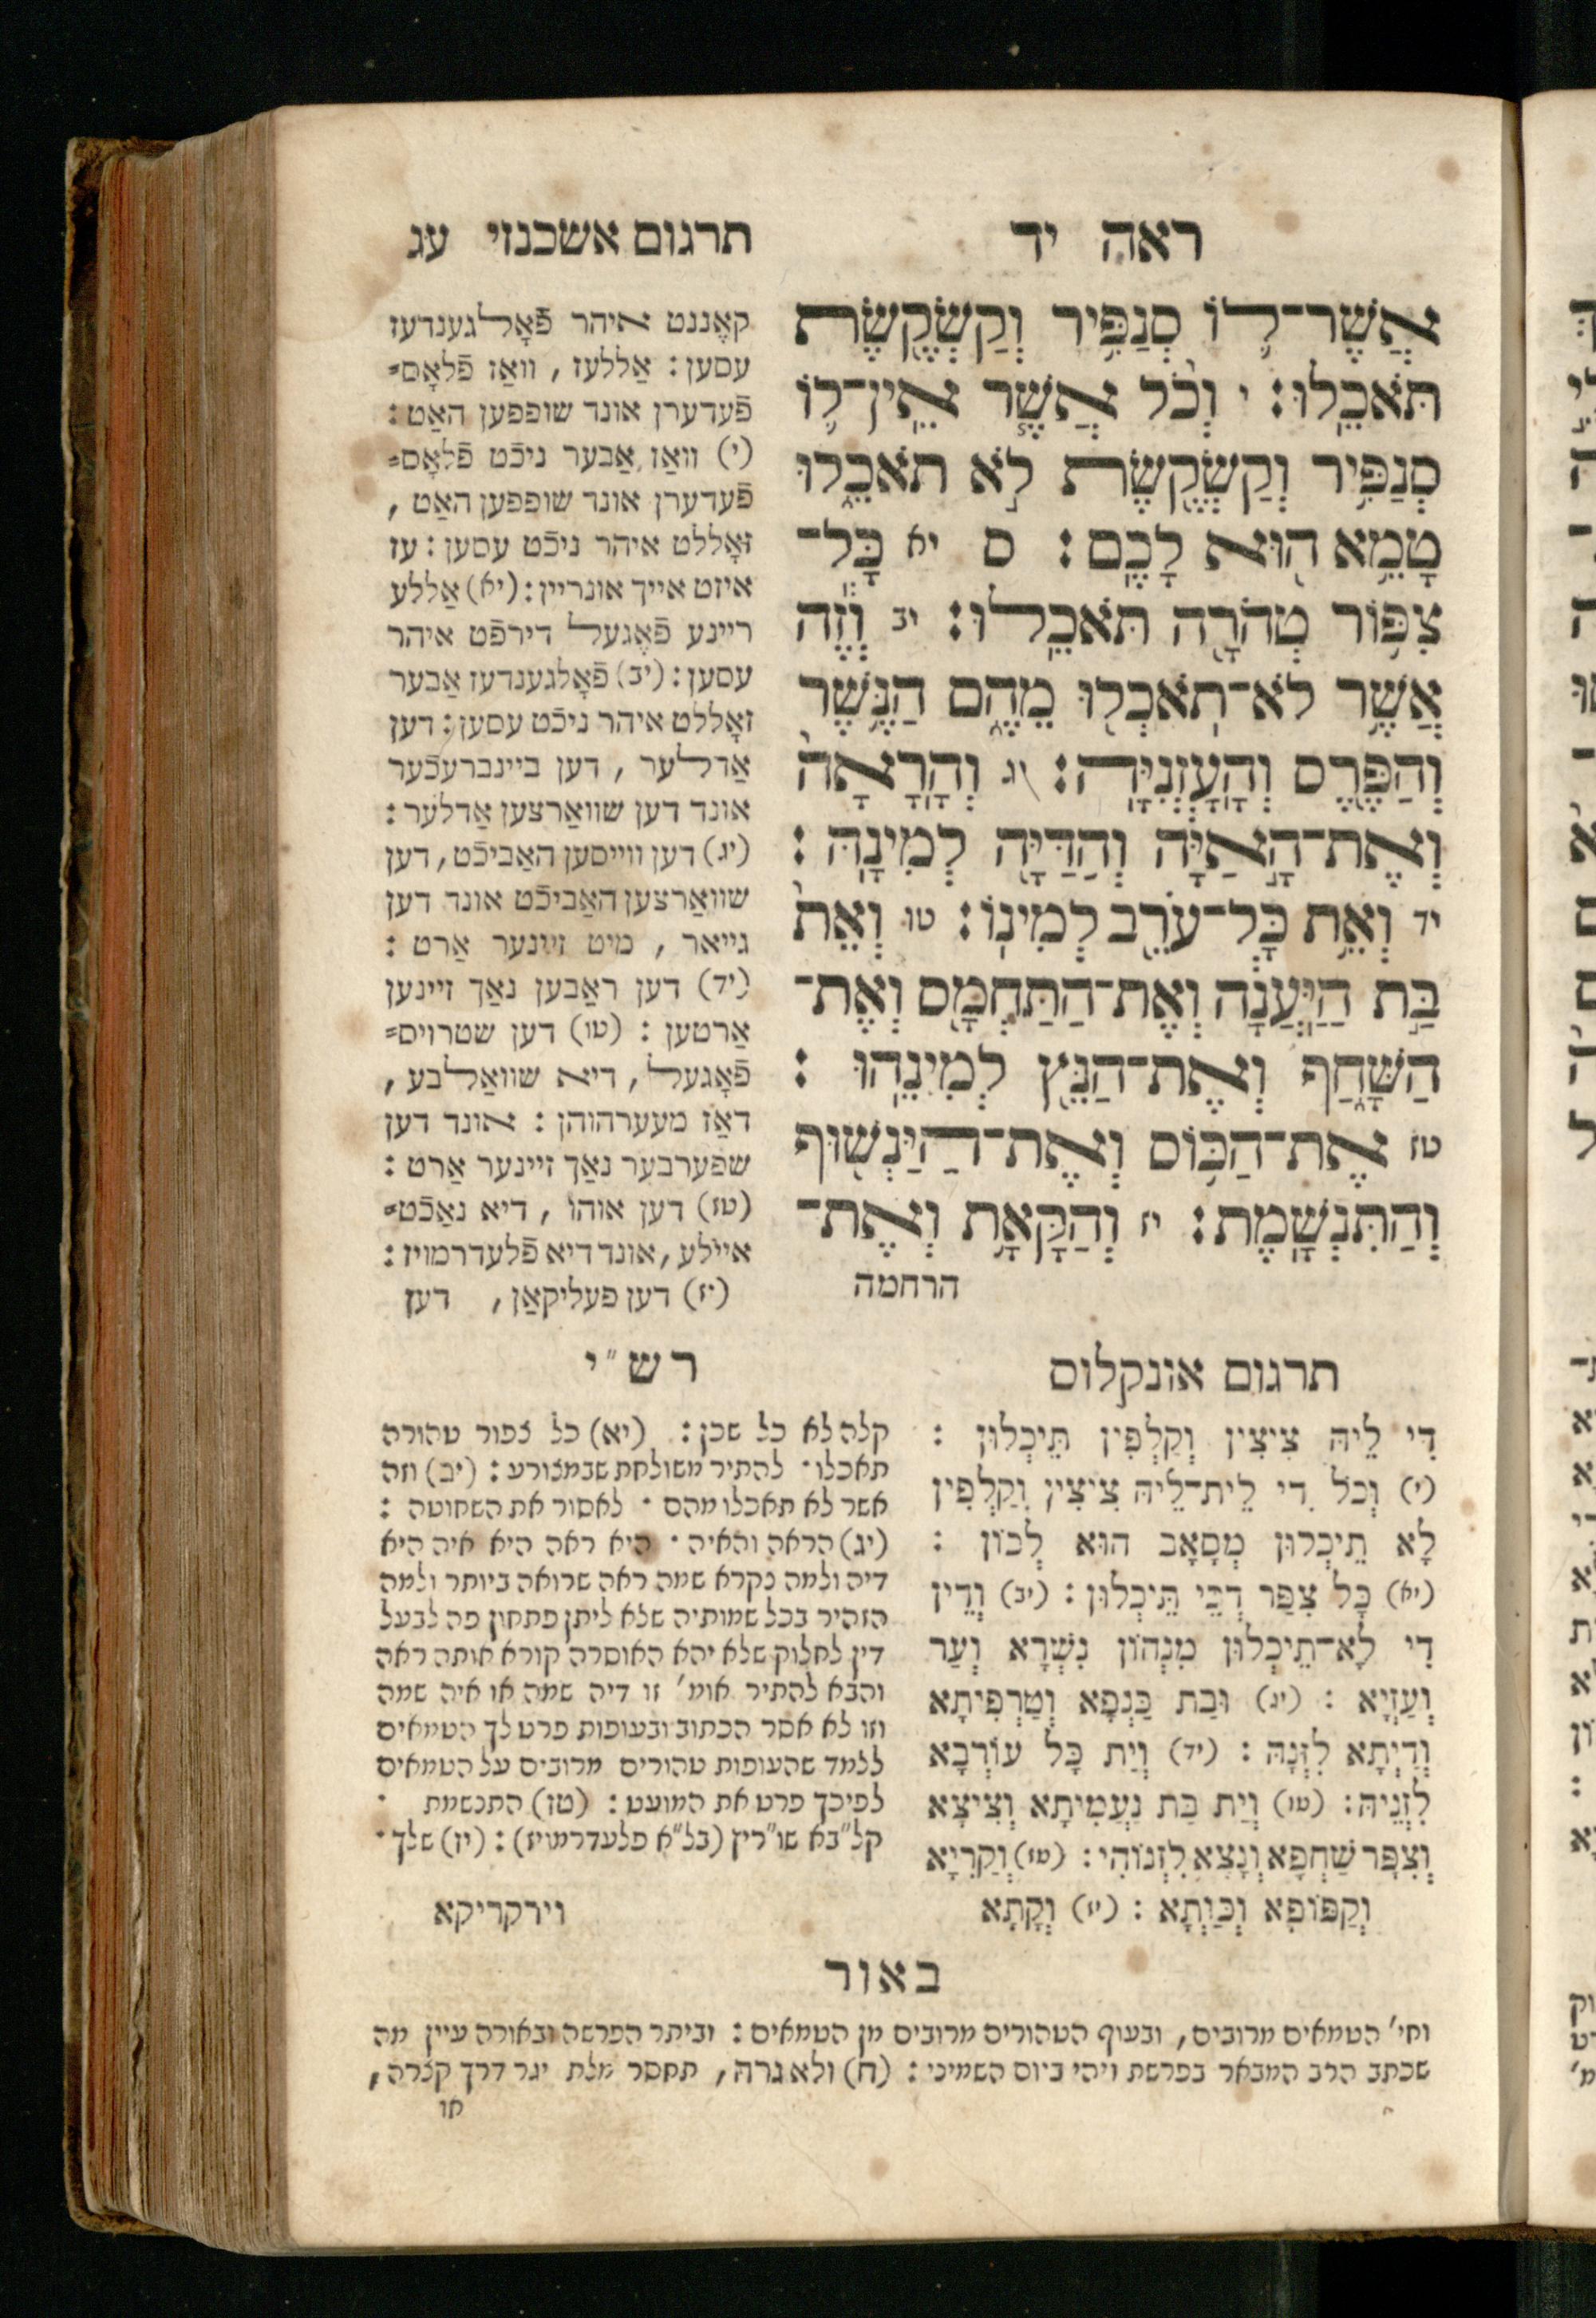 ראה יד
אֲשֶׁר־ל֛וֹ סְנַפִּ֥יר וְקַשְׂקֶ֖שֶׂת
תֹּאכֵֽלוּ׃ י וְכֹ֨ל אֲשֶׁ֧ר אֵֽין־ל֛וֹ
סְנַפִּ֥יר וְקַשְׂקֶ֖שֶׂת לֹ֣א תֹאכֵ֑לוּ
טָמֵ֥א ה֖וּא לָכֶֽם׃ ס יא כָּל־
צִפּ֥וֹר טְהֹרָ֖ה תֹּאכֵֽלוּ׃ יב וְזֶ֕ה
אֲשֶׁ֥ר לֹא־תֹאכְל֖וּ מֵהֶ֑ם הַנֶּ֥שֶׁר
וְהַפֶּ֖רֶס וְהָֽעָזְנִיָּֽה׃ יג וְהָרָאָה֙
וְאֶת־הָ֣אַיָּ֔ה וְהַדַּיָּ֖ה לְמִינָֽהּ׃
יד וְאֵ֥ת כָּל־עֹרֵ֖ב לְמִינֽוֹ׃ טו וְאֵת֙
בַּ֣ת הַֽיַּעֲנָ֔ה וְאֶת־הַתַּחְמָ֖ס וְאֶת־
הַשָּׁ֑חַף וְאֶת־הַנֵּ֖ץ לְמִינֵֽהוּ׃
טז אֶת־הַכּ֥וֹס וְאֶת־הַיַּנְשׁ֖וּף
וְהַתִּנְשָֽׁמֶת׃ יז וְהַקָּאָ֥ת וְאֶת־
הרחמה
תרגום אשכנזי עג
קאֶננט איהר פֿאָלגענדעז
עסען: אַללעז, וואַז פֿלאָס=
פֿעדערן אונד שופפען האַט:
(י) וואַז אַבער ניכֿט פֿלאָס=
פֿעדערן אונד שופפען האַט,
זאָללט איהר ניכֿט עסען: עז
איזט אייך אונריין: (יא) אַללע
ריינע פֿאֶגעל דירפֿט איהר
עסען: (יב) פֿאָלגענדעז אַבער
זאָללט איהר ניכֿט עסען: דען
אַדלער, דען ביינברעכֿער
אונד דען שוואַרצען אַדלער:
(יג) דען ווייסען האַביכֿט, דען
שוואַרצען האַביכֿט אונד דען
גייאר, מיט זיינער אַרט:
(יד) דען ראַבען נאַך זיינען
אַרטען: (טו) דען שטרויס=
פֿאָגעל, דיא שוואַלבע,
דאַז מעערהוהן: אונד דען
שפערבער נאַך זיינער אַרט:
(טז) דען אוהו, דיא נאַכֿט=
איילע, אונד דיא פֿלעדרמויז:
(יז) דען פעליקאַן, דען
תרגום אונקלוס
דִּי לֵיהּ צִיצִין וְקַלְפִין תֵּיכְלוּן:
(י) וְכֹל דִּי לֵית־לֵיהּ צִיצִין וְקַלְפִין
לָא תֵיכְלוּן מְסָאָב הוּא לְכוֹן:
(יא) כָּל צִפַּר דְּכֵי תֵּיכְלוּן: (יב) וְדֵין
דִּי לָא־תֵיכְלוּן מִנְּהוֹן נִשְׁרָא וְעַר
וְעַזְיָא: (יג) וּבַת כַּנְפָא וְטַרְפִיתָא
וְדַיְתָא לִזְנָהּ: (יד) וְיַת כָּל עוֹרְבָא
לִזְנֵיהּ: (טו) וְיַת בַּת נַעֲמִיתָא וְצִיצָא
וְצִפַּר שַׁחְפָא וְנָצִא לִזְנוֹהִי: (טז) וְקַרְיָא
וְקִפּוֹפָא וְכַוְתָא: (יז) וְקָתָא
רש״י
קלה לא כל שכן: (יא) כל צפור טהורה
תאכלו· להתיר משולחת שבמצורע: (יב) וזה
אשר לא תאכלו מהם· לאסור את השחוטה:
(יג) הראה והאיה· היא ראה היא איה היא
דיה ולמה נקרא שמה ראה שרואה ביותר ולמה
הזהיר בכל שמותיה שלא ליתן פתחון פה לבעל
דין לחלוק שלא יהא האוסרה קורא אותה ראה
והבא להתיר אומ׳ זו דיה שמה או איה שמה
וזו לא אסר הכתוב ובעופות פרט לך הטמאים
ללמד שהעופות טהורים מרובים על הטמאים
לפיכך פרט את המועט: (טז) התנשמת·
קל״בא שו״ריץ (בל״א פלעדרמויז): (יז) שלך·
וירקריקא
באור
וחי׳ הטמאים מרובים, ובעוף הטהורים מרובים מן הטמאים: וביתר הפרשה ובאורה עיין מה
שכתב הרב המבאר בפרשת ויהי ביום השמיני: (ח) ולא גרה, תחסר מלת יגר דרך קצרה,
או